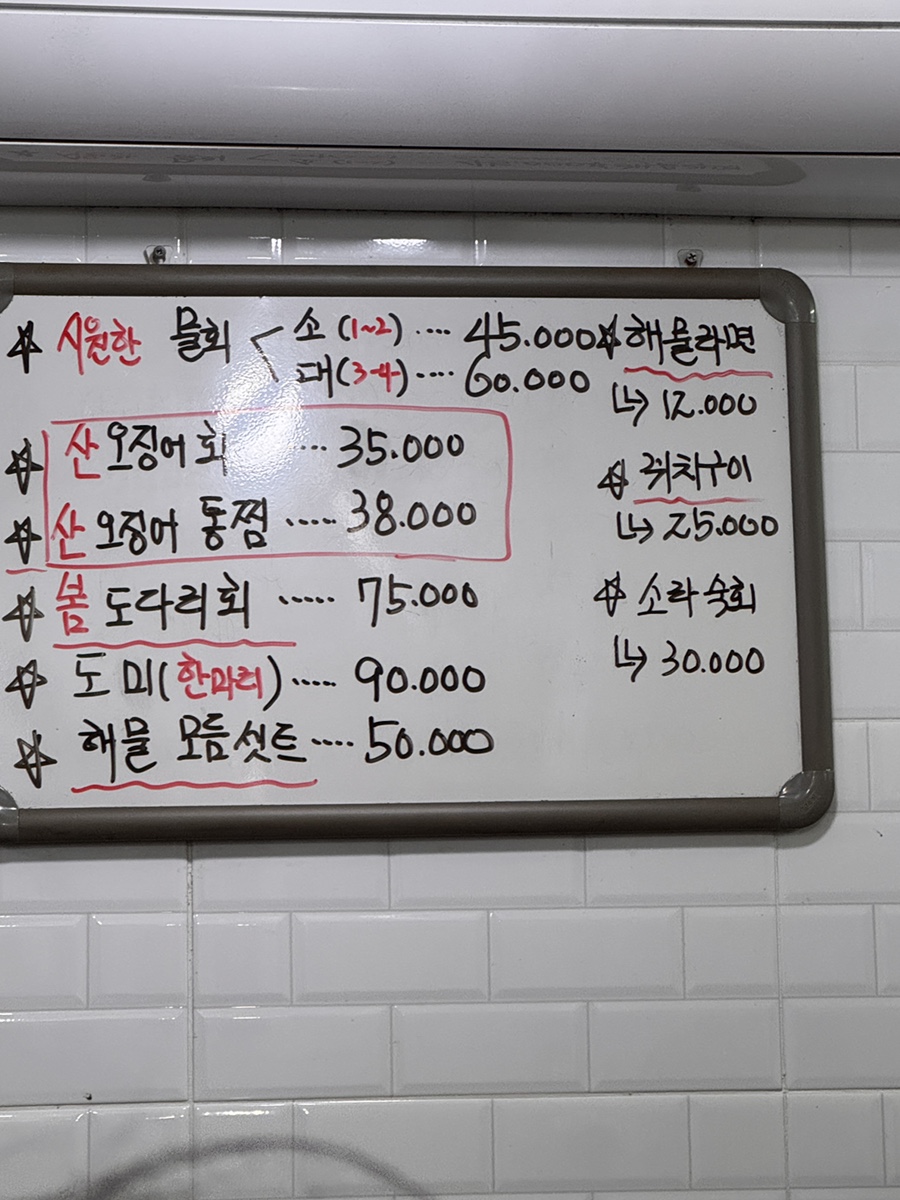 ☆ 시원한 물회 < 소 (1~2) .... 45.000
대(3-4) .... 60.000
☆ 산 오징어 회 ... 35.000
☆ 산 오징어 통찜 ..... 38.000
☆ 봄 도다리회 ..... 75.000
☆ 도미(한마리) ..... 90.000
☆ 해물 모듬셋트 .... 50.000
☆ 해물라면
↳ 12.000
☆ 쥐치구이
↳ 25.000
☆ 소라숙회
↳ 30.000